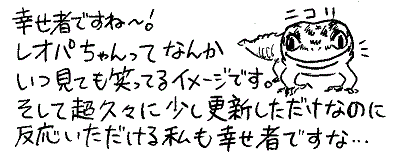 幸せ者ですね〜!
ニコリ
レオパちゃんってなんか
いつ見ても笑ってるイメージです。
そして超久々に少し更新しただけなのに
反応いただける私も幸せ者ですな…